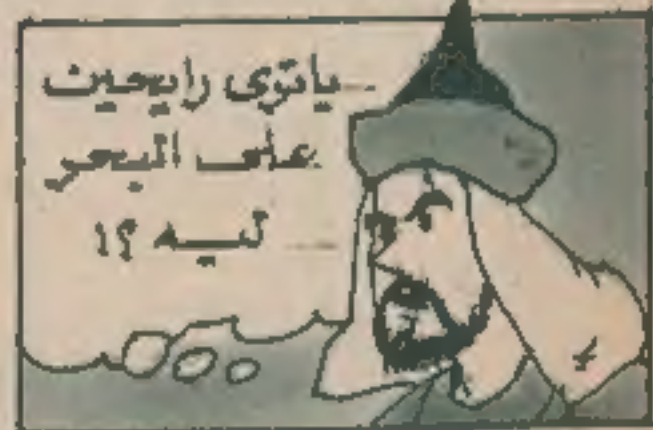 - ياترى رايحين
على البحر
ليه ؟!